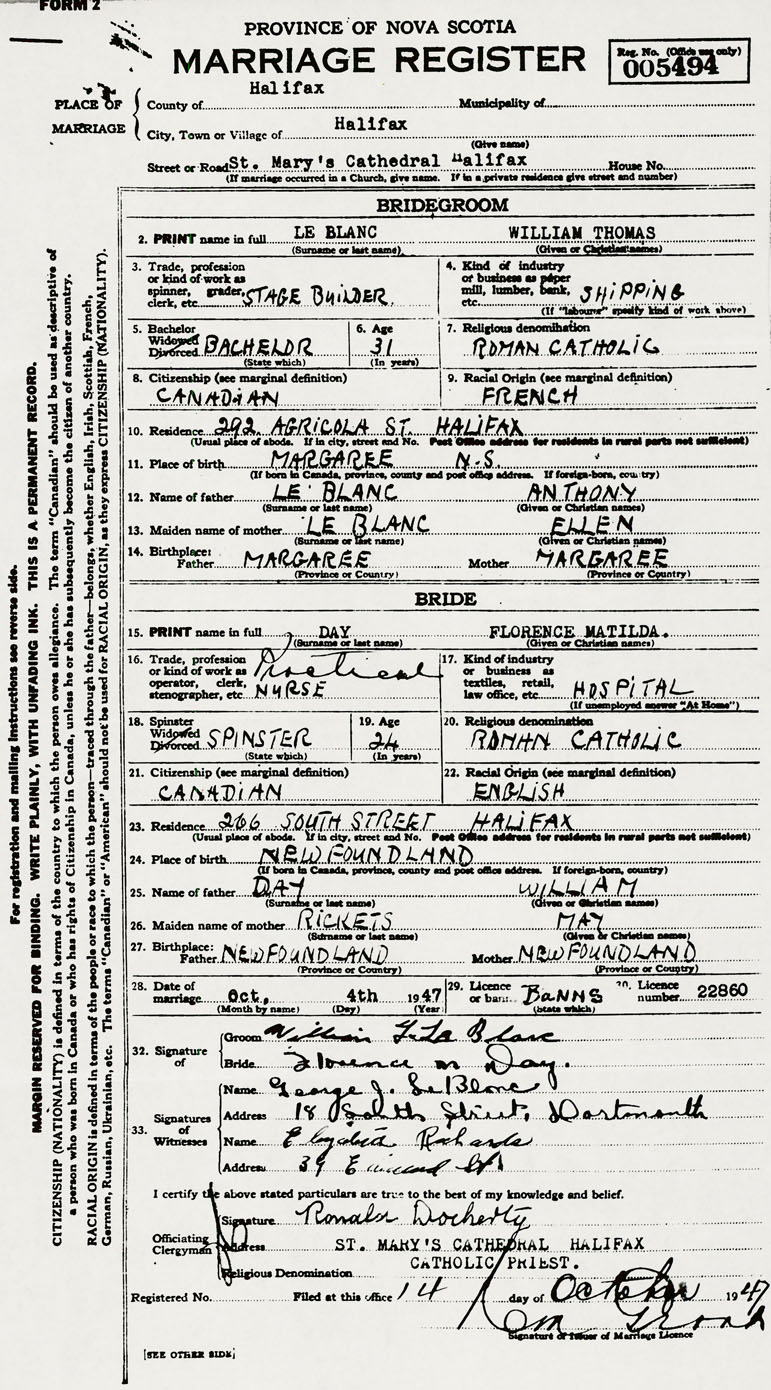 FORM 2
PROVINCE OF NOVA SCOTIA
MARRIAGE REGISTER
Reg. No. (Office use only)
005494
PLACE OF MARRIAGE
County of Halifax Municipality of
City, Town or Village of Halifax
(Give name)
Street or Road St. Mary's Cathedral Halifax House No.
(If marriage occurred in a Church, give name. If in a private residence give street and number)
BRIDEGROOM
2. PRINT name in full LE BLANC WILLIAM THOMAS
(Surname or last name) (Given or Christian names)
3. Trade, profession or kind of work as spinner, grader, clerk, etc. STAGE BUILDER
4. Kind of industry or business as paper mill, lumber, bank, etc. SHIPPING
(If "labourer" specify kind of work above)
5. Bachelor Widowed Divorced BACHELOR
(State which)
6. Age 31
(In years)
7. Religious denomination ROMAN CATHOLIC
8. Citizenship (see marginal definition) CANADIAN
9. Racial Origin (see marginal definition) FRENCH
10. Residence 292 AGRICOLA ST. HALIFAX
(Usual place of abode. If in city, street and No. Post Office address for residents in rural parts not sufficient)
11. Place of birth MARGAREE N.S.
(If born in Canada, province, county and post office address. If foreign-born, country)
12. Name of father LE BLANC ANTHONY
(Surname or last name) (Given or Christian names)
13. Maiden name of mother LE BLANC ELLEN
(Surname or last name) (Given or Christian names)
14. Birthplace: Father MARGAREE Mother MARGAREE
(Province or Country) (Province or Country)
BRIDE
15. PRINT name in full DAY FLORENCE MATILDA.
(Surname or last name) (Given or Christian names)
16. Trade, profession or kind of work as operator, clerk, stenographer, etc. Practical NURSE
17. Kind of industry or business as textiles, retail, law office, etc. HOSPITAL
(If unemployed answer "At Home")
18. Spinster Widowed Divorced SPINSTER
(State which)
19. Age 24
(In years)
20. Religious denomination ROMAN CATHOLIC
21. Citizenship (see marginal definition) CANADIAN
22. Racial Origin (see marginal definition) ENGLISH
23. Residence 266 SOUTH STREET HALIFAX
(Usual place of abode. If in city, street and No. Post Office address for residents in rural parts not sufficient)
24. Place of birth NEWFOUNDLAND
(If born in Canada, province, county and post office address. If foreign-born, country)
25. Name of father DAY WILLIAM
(Surname or last name) (Given or Christian names)
26. Maiden name of mother RICKETS MAY
(Surname or last name) (Given or Christian names)
27. Birthplace: Father NEWFOUNDLAND Mother NEWFOUNDLAND
(Province or Country) (Province or Country)
28. Date of marriage Oct. 4th 1947
(Month by name) (Day) (Year)
29. Licence or banns BANNS
(State which)
30. Licence number 22860
32. Signature of
Groom William T. Le Blanc
Bride Florence M Day.
33. Signatures of Witnesses
Name George J. LeBlanc
Address 18 South Street, Dartmouth
Name Elizabeth Richards
Address 39 St
I certify the above stated particulars are true to the best of my knowledge and belief.
Officiating Clergyman
Signature Ronald Docherty
Address ST. MARY'S CATHEDRAL HALIFAX
CATHOLIC PRIEST.
Religious Denomination
Registered No. Filed at this office 14 day of October 1947
Signature of Issuer of Marriage Licence
[SEE OTHER SIDE]
For registration and mailing instructions see reverse side.
MARGIN RESERVED FOR BINDING. WRITE PLAINLY, WITH UNFADING INK. THIS IS A PERMANENT RECORD.
CITIZENSHIP (NATIONALITY) is defined in terms of the country to which the person owes allegiance. The term "Canadian" should be used as descriptive of
a person who was born in Canada or who has rights of Citizenship in Canada, unless he or she has subsequently become the citizen of another country.
RACIAL ORIGIN is defined in terms of the people or race to which the person—traced through the father—belongs, whether English, Irish, Scottish, French,
German, Russian, Ukrainian, etc. The terms "Canadian" or "American" should not be used for RACIAL ORIGIN, as they express CITIZENSHIP (NATIONALITY).